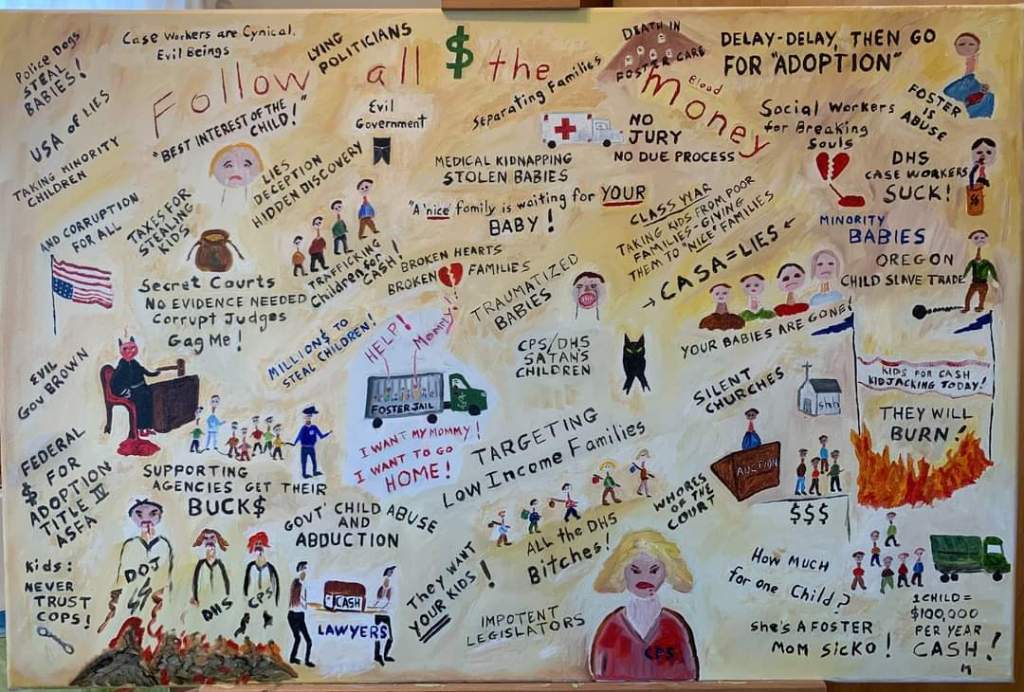 Police Dogs
STEAL
BABIES!
Case Workers are Cynical,
Evil Beings
LYING
POLITICIANS
Follow all $ the
Blood
Money
DEATH IN
FOSTER CARE
DELAY-DELAY, THEN GO
FOR "ADOPTION"
FOSTER
IS
ABUSE
USA of LIES
"BEST INTEREST OF THE
CHILD!"
Evil
Government
Separating Families
NO
JURY
NO DUE PROCESS
Social Workers
for Breaking
Souls
TAKING MINORITY
CHILDREN
LIES
DECEPTION
HIDDEN DISCOVERY
MEDICAL KIDNAPPING
STOLEN BABIES
DHS
CASE WORKERS
SUCK!
AND CORRUPTION
FOR ALL
TAXES FOR
STEALING
KIDS
"A 'nice' family is waiting for YOUR
BABY!
CLASS WAR
TAKING KIDS FROM POOR
FAMILIES-GIVING
THEM TO "NICE" FAMILIES
MINORITY
BABIES
OREGON
CHILD SLAVE TRADE
TRAFFICKING
Children for
CASH!
BROKEN HEARTS
BROKEN FAMILIES
CASA=LIES
Secret Courts
NO EVIDENCE NEEDED
Corrupt Judges
Gag Me!
TRAUMATIZED
BABIES
YOUR BABIES ARE GONE!
MILLION$ TO
STEAL CHILDREN!
HELP!
Mommy!
CPS/DHS
SATAN'S
CHILDREN
KIDS FOR CASH
KIDJACKING TODAY!
EVIL
GOV BROWN
FOSTER JAIL
SILENT
CHURCHES
shh
THEY WILL
BURN!
I WANT MY MOMMY!
I WANT TO GO
HOME!
TARGETING
Low Income Families
AUCTION
$$$
FEDERAL
$ FOR
ADOPTION
TITLE IV
ASFA
SUPPORTING
AGENCIES GET THEIR
BUCK$
GOVT' CHILD ABUSE
AND
ABDUCTION
WHORES
OF THE
COURT
ALL the DHS
Bitches!
Kids:
NEVER
TRUST
COPS!
DOJ
DHS
CPS
CASH
LAWYERS
THEY WANT
YOUR KIDS!
IMPOTENT
LEGISLATORS
CPS
How Much
for one Child?
She's A FOSTER
MOM SICKO!
1 CHILD=
$100,000
PER YEAR
CASH!